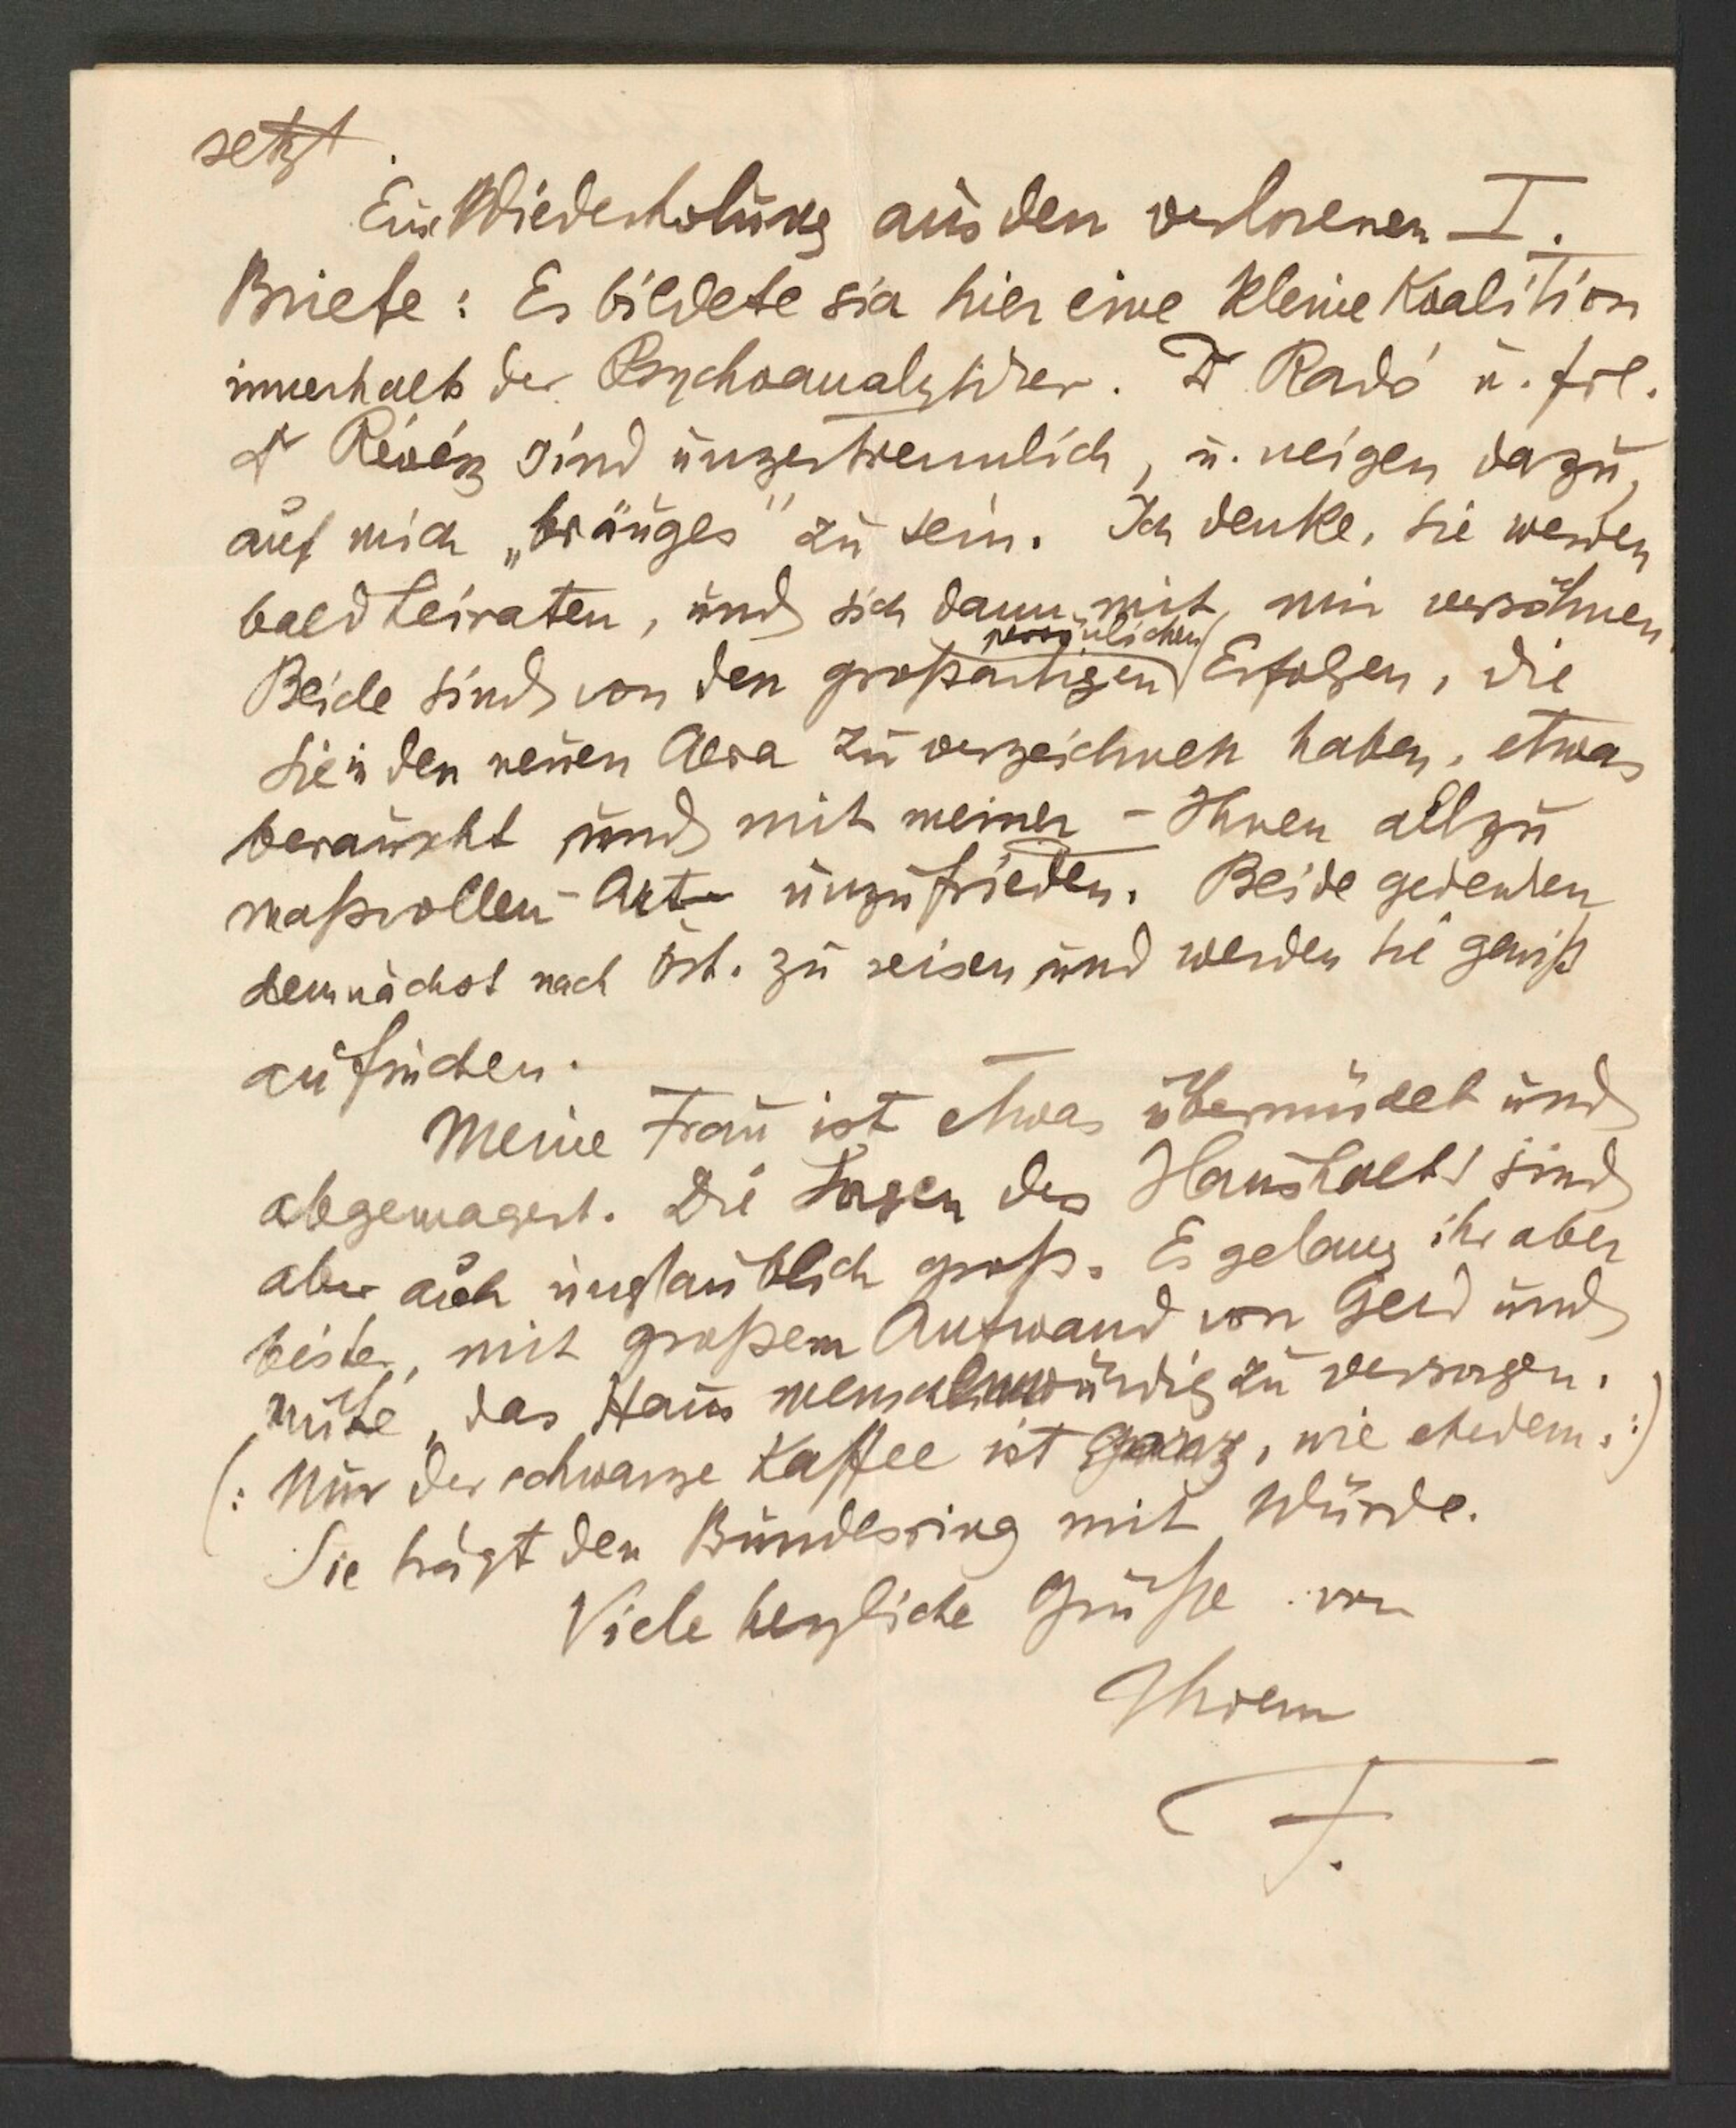 setzt.
Eine Wiederholung aus den verlorenen I.
Briefe: Es bildete sich hier eine kleine Koalition
innerhalb der Psychoanalytiker. Dr Radó u. Frl.
Dr Révész sind unzertrennlich, u. neigen dazu,
auf mich „bräuges" zu sein. Ich denke, sie werden
bald heiraten, und sich dann mit mir versöhnen.
persönlichen
Beide sind von den großartigen Erfolgen, die
sie in den neuen Aera zu verzeichnen haben, etwas
berauscht und mit meiner – Ihnen allzu
maßvollen – Art unzufrieden. Beide gedenken
demnächst nach Öst. zu reisen und werden Sie gewiß
aufsuchen.
Meine Frau ist etwas übermüdet und
abgemagert. Die Sorgen des Haushalts sind
aber auch unglaublich groß. Es gelang ihr aber
bisher, mit großem Aufwand von Geld und
Mühe, das Haus menschenwürdig zu versorgen.
(: Nur der schwarze Kaffee ist ganz, wie ehedem. :)
Sie trägt den Bundesring mit Würde.
Viele herzliche Grüße von
Ihrem
F.